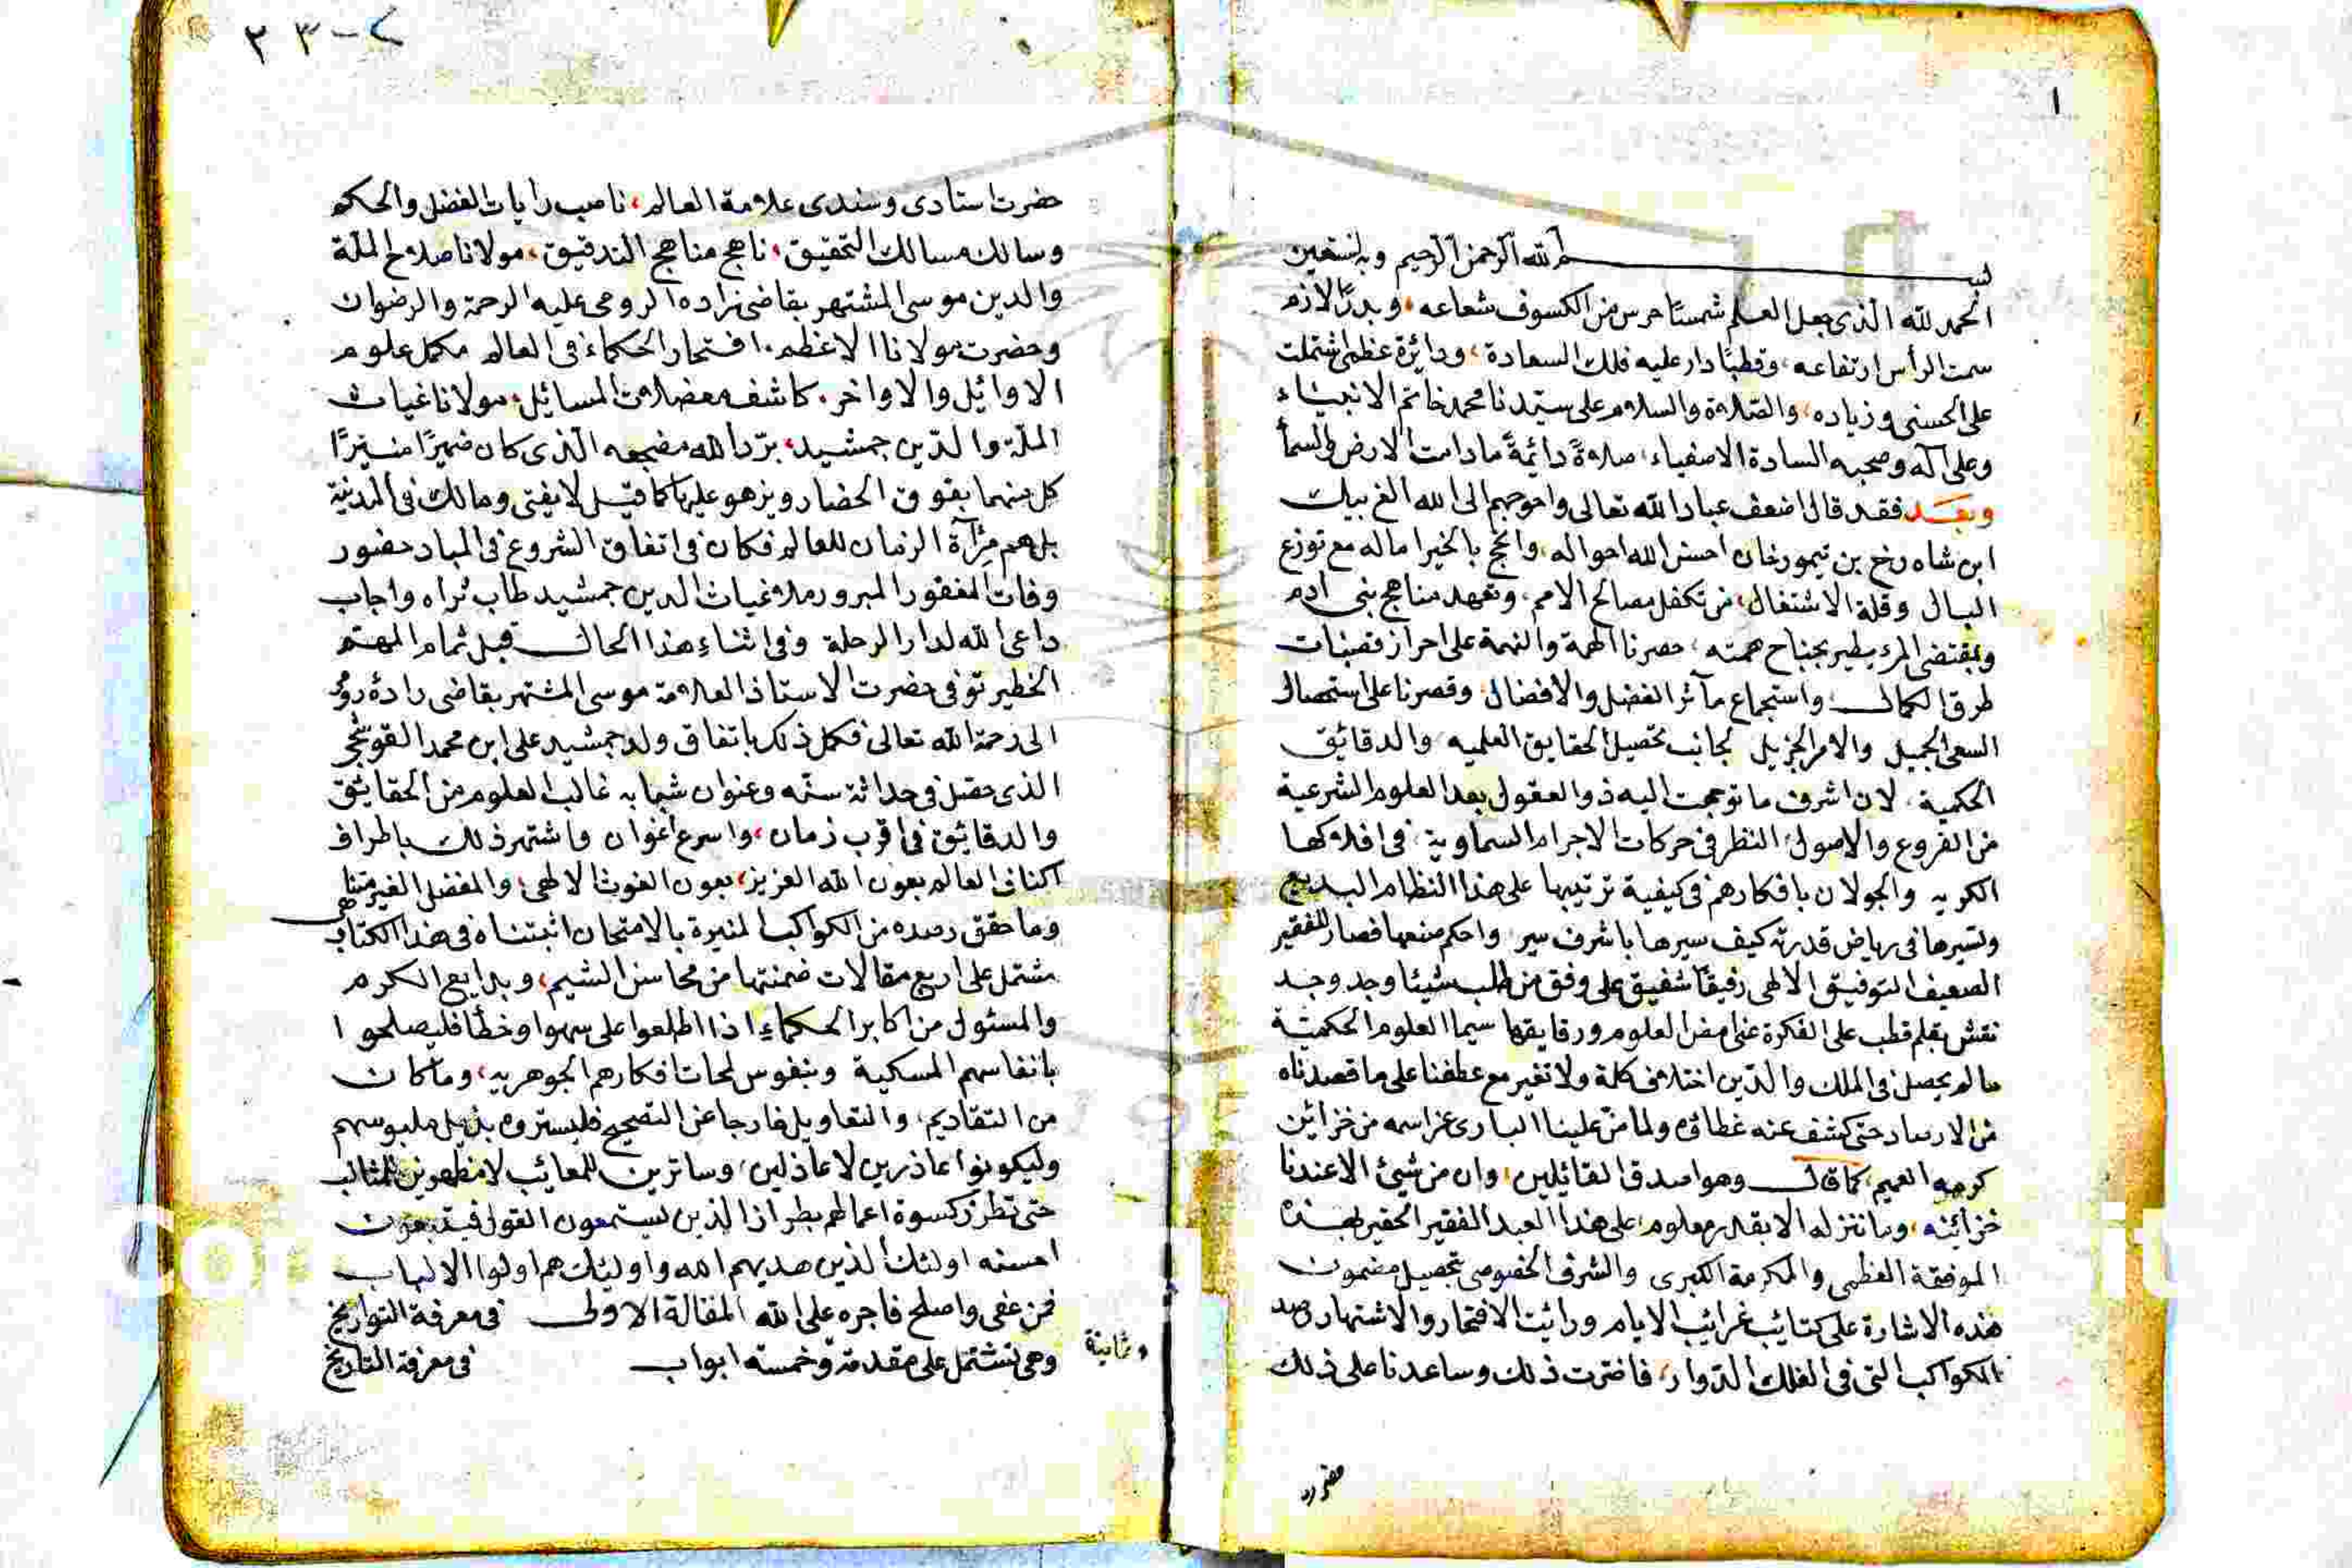 ١
بسم الله الرحمن الرحيم وبه نستعين
الحمد لله الذى جعل العلم شمسًا حرس من الكسوف شعاعه، وبدرًا لازم
سمت الرأس ارتفاعه، وقطبًا دار عليه فلك السعادة، ودائرة عظم اشتملت
على الحسنى وزياده، والصّلاة والسلام على سيّدنا محمد خاتم الانبياء
وعلى آله وصحبه السادة الاصفياء، صلاةً دائمةً ما دامت الارض والسمأ
وبعد فقد قال اضعف عباد الله تعالى واحوجهم الى الله الغ بيك
ابن شاه رخ بن تيمورخان احسن الله احواله، وانجح بالخير اماله مع توزع
البال وقلة الاشتغال، من تكفل مصالح الامم، وتعهد مناهج بنى ادم
وبمقتضى المرء يطير بجناح همته، حصرنا الهمة والنهمة على احراز قصبات
طرق الكمال واستجماع مآثر الفضل والافضال، وقصرنا على استحصال
السعى الجميل والامر الجزيل لجانب تحصيل الحقايق العلميه والدقائق
الحكمية، لان اشرف ما توجهت اليه ذو العقول بعد العلوم الشرعية
من الفروع والاصول النظر فى حركات الاجرام السماوية، فى افلاكها
الكريه والجولان بافكارهم فى كيفية ترتيبها على هذا النظام البديع
وتسيرها فى رياض قدرته كيف سيرها باشرف سير واحكم صنعها فصار للفقير
الضعيف التوفيق الالهى رفيقًا شفيق على وفق من طلب شيئا وجد وجد
نقش بقلم قطب على الفكرة غوامض العلوم ورقايقها سيما العلوم الحكميّة
ما لم يحصل فى الملك والدّين اختلاف كلة ولا تغير مع عطفنا على ما قصدناه
من الارصاد حتى كشف عنه غطاؤه ولما منّ علينا البارى عز اسمه من خزائن
كرمه العميم كما قال وهو اصدق القائلين، وان من شيئ الا عندنا
خزائنه، وما ننزله الا بقدر معلوم، على هذا العبد الفقير الحقير بهذه
الموفقة العظمى والمكرمة الكبرى والشرف الخصوصى بتحصيل مضمون
هذه الاشارة على كتائب غرائب الايام ورائيت الافتخار والاشتهار رصد
الكواكب التى فى الفلك الدّوار، فاخترت ذلك وساعدنا على ذلك
حضرت استادى وسندى علامة العالم، ناصب رايات الفضل والحكم
وسالك مسالك التحقيق، ناهج مناهج التدقيق، مولانا صلاح الملّة
والدين موسى المشتهر بقاضى زاده الرومى عليه الرحمة والرضوان
وحضرت مولانا الاعظم، افتحار الحكماء فى العالم مكمل علوم
الاوائل والاواخر، كاشف معضلات المسائل، مولانا غياث
الملّة والدّين جمشيد، برّد الله مضجعه الّذى كان ضميرًا منيرًا
كل منهما يفوق الحضار ويزهو عليها كما قيل لا يفتى ومالك فى المدنية
بل هم مرآة الزمان للعالم فكان فى اتفاق الشروع فى المباد حضور
وفات المغفور المبرور ملا غياث الدين جمشيد طاب ثراه واجاب
داعى الله لدار الرحلة وفى اثناء هذا الحال قبل تمام المهتم
الخطير توفى حضرت الاستاذ العلامة موسى المشتهر بقاضى زادة رومى
الى رحمة الله تعالى فكمل ذلك باتفاق ولد جمشيد على ابن محمد القوشجى
الذى حصل فى حداثة سنّه وعنوان شبابه غالب العلوم من الحقائق
والدقائق فى اقرب زمان، واسرع اغوان واشتهر ذلك باطراف
اكناف العالم بعون الله العزيز، بعون الغوث الالهى، والفضل الغير متناهى
وما حقق رصده من الكواكب المنيرة بالامتحان اثبتناه فى هذا الكتاب
مشتمل على اربع مقالات ضمنتها من محاسن الشيم، وبدايع الكرم
والمسئول من اكابر الحكماء اذا اطلعوا على سهوا وخطأ فليصلحوا
بانفاسهم المسكية وبنفوس لحات افكارهم الجوهريه، وما كان
من التقاديم، والتعاويل خارجا عن التصحيح فليستروه بذيل ملبوسهم
وليكونوا عاذرين لا عاذلين، وساترين للمعائب لا مظهرين للمثالب
حتى تطرز كسوة اعمالهم بطراز الذين يستمعون القول فيتبعون
احسنه اولئك الذين هديهم الله واوليئك هم اولوا الالباب
فمن عفى واصلح فاجره على الله المقالة الاولى فى معرفة التواريخ
وهى تشتمل على مقدمة وخمسته ابواب فى معرفة التاريخ
وثمانية